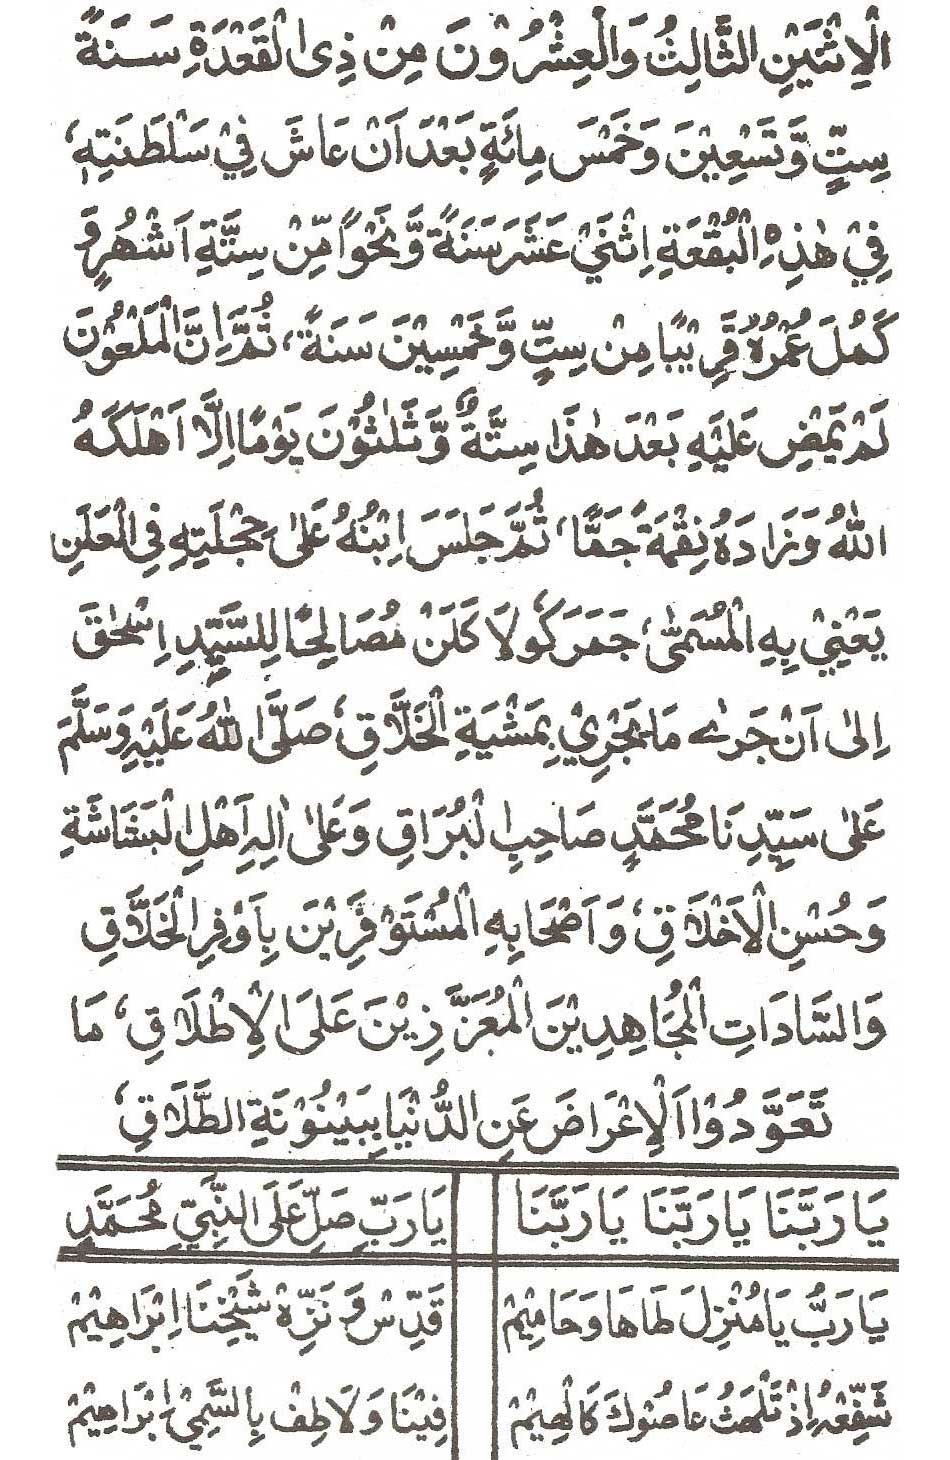 الْاِثْنَيْنِ الثَّالِثُ وَالْعِشْرُوْنَ مِنْ ذِى الْقَعْدَةِ سَنَةً
سِتٍّ وَّتَسْعِيْنَ وَخَمْسَ مِائَةٍ بَعْدَ اَنْ عَاشَ فِيْ سَلْطَنَتِهٖ،
فِيْ هٰذِهِ الْبُقْعَةِ اِثْنَيْ عَشَرَ سَنَةً وَّنَحْوًا مِّنْ سِتَّةِ اَشْهُرٍ وَّ
كَمُلَ عُمْرُهُ قَرِيْبًا مِنْ سِتٍّ وَّخَمْسِيْنَ سَنَةً، ثُمَّ اِنَّ الْمَلْعُوْنَ
لَمْ يَمْضِ عَلَيْهِ بَعْدَ هٰذَا سِتَّةٌ وَّثَلٰثُوْنَ يَوْمًا اِلَّا اَهْلَكَهُ
اللّٰهُ وَزَادَهُ نِقْمَةً جَمًّا، ثُمَّ جَلَسَ اِبْنُهُ عَلىٰ حَجْلَتِهِ فِى الْعَلَنِ
يَعْنِيْ بِهِ الْمُسَمّٰى، جَمَرَ كُولَا كَلَنْ مُصَالِحًا لِلسَّيِّدِ اِسْحٰقَ
اِلىٰ اَنْ جَرٰے مَا يَجْرِيْ بِمَشْيَةِ الْخَلَّاقِ، صَلَّى اللّٰهُ عَلَيْهِ وَسَلَّمَ
عَلٰى سَيِّدِنَا مُحَمَّدٍ صَاحِبِ الْبُرَاقِ وَعَلىٰ اٰلِهِ اَهْلِ الْبَشَاشَةِ
وَحُسْنِ الْاَخْلَاقِ، وَاَصْحَابِهِ الْمُسْتَوْفِرِيْنَ بِاَوْفِرِ الْخَلَّاقِ
وَالسَّادَاتِ الْمُجَاهِدِيْنَ الْمُعَزَّزِيْنَ عَلَى الْاِطْلَاقِ، مَا
تَعَوَّدُوْا اَلْاِعْرَاضَ عَنِ الدُّنْيَا بِبَيْنُوْنَةِ الطَّلَاقِ،
يَا رَبَّنَا يَا رَبَّنَا يَا رَبَّنَا يَا رَبِّ صَلِّ عَلَى النَّبِيِّ مُحَمَّدٍ
يَا رَبُّ يَا مُنْزِلَ طَاهَا وَحَامِيْمْ قَدِّسْ وَنَزِّهْ شَيْخَنَا اِبْرَاهِيْمْ
شَفِّعْهُ اِذْ تَلْهَثُ عَاصُوْكَ كَالْهِيْمْ فِيْنَا وَلَاطِفْ بِالسَّمِيْ اِبْرَاهِيْمْ